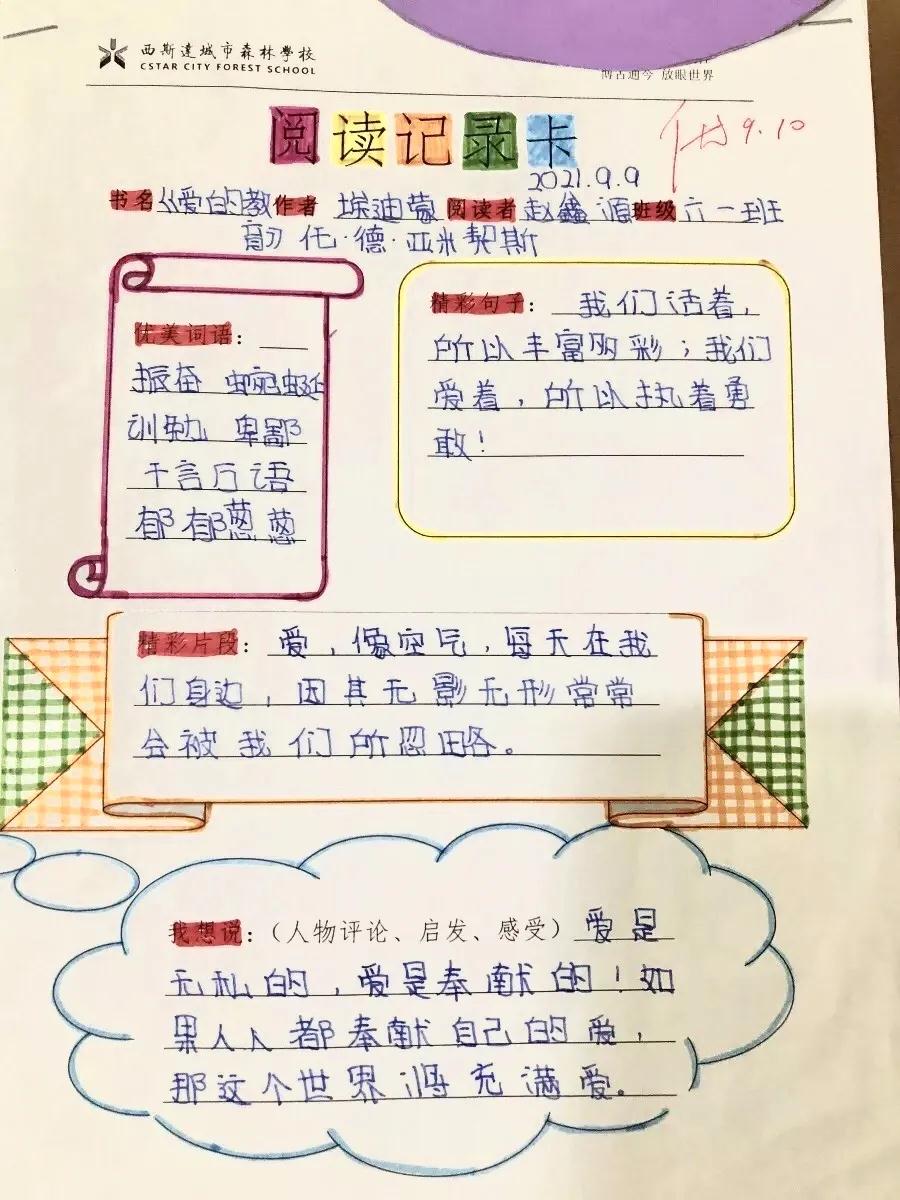 西斯達城市森林學校
CSTAR CITY FOREST SCHOOL
博古通今 放眼世界
阅读记录卡
2021.9.9
9.10
书名《爱的教 作者 埃迪蒙 阅读者 赵鑫源 班级 六一班
育》 托·德·亚米契斯
优美词语：
振奋 蜿蜒
训勉 卑鄙
千言万语
郁郁葱葱
精彩句子： 我们活着，
所以丰富多彩；我们
爱着，所以执着勇
敢！
精彩片段： 爱，像空气，每天在我
们身边，因其无影无形常常
会被我们所忽略。
我想说：（人物评论、启发、感受）爱是
无私的，爱是奉献的！如
果人人都奉献自己的爱，
那这个世界将充满爱。